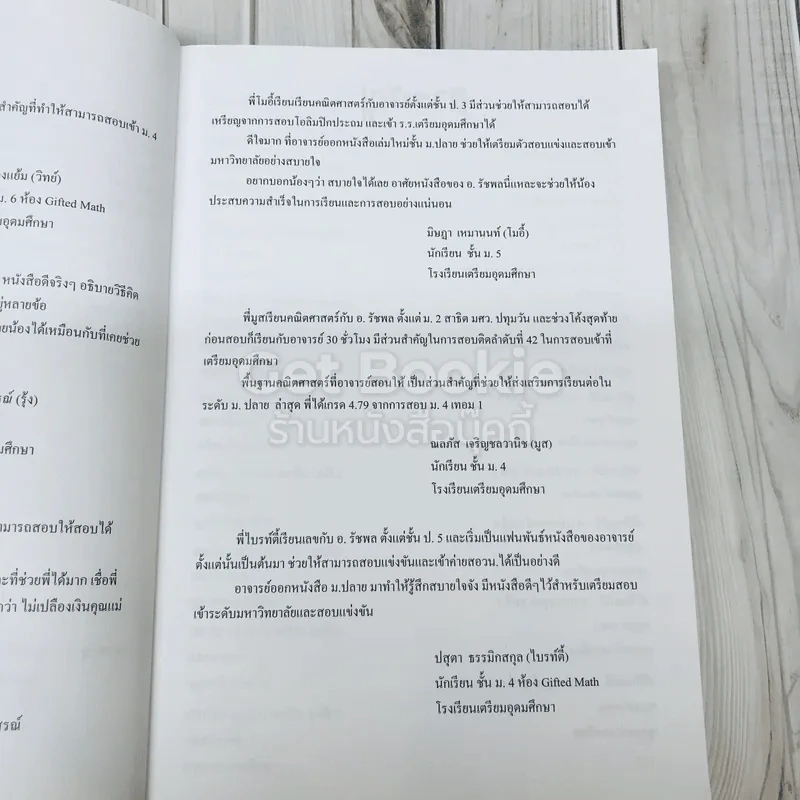 สำคัญที่ทำให้สามารถสอบเข้า ม. 4
งแย้ม (วิทย์)
ม. 6 ห้อง Gifted Math
มอุดมศึกษา
หนังสือดีจริงๆ อธิบายวิธีคิด
ยู่หลายข้อ
ยน้องได้เหมือนกับที่เคยช่วย
รณ์ (รุ้ง)
มศึกษา
ามารถสอบให้สอบได้
ะที่ช่วยพี่ได้มาก เชื่อพี่
กว่า ไม่เปลืองเงินคุณแม่
รณ์
พี่โมอี้เรียนเรียนคณิตศาสตร์กับอาจารย์ตั้งแต่ชั้น ป. 3 มีส่วนช่วยให้สามารถสอบได้
เหรียญจากการสอบโอลิมปิกประถม และเข้า ร.ร.เตรียมอุดมศึกษาได้
ดีใจมาก ที่อาจารย์ออกหนังสือเล่มใหม่ชั้น ม.ปลาย ช่วยให้เตรียมตัวสอบแข่งและสอบเข้า
มหาวิทยาลัยอย่างสบายใจ
อยากบอกน้องๆว่า สบายใจได้เลย อาศัยหนังสือของ อ. รัชพลนี่แหละจะช่วยให้น้อง
ประสบความสำเร็จในการเรียนและการสอบอย่างแน่นอน
มิษฎา เหมานนท์ (โมอี้)
นักเรียน ชั้น ม. 5
โรงเรียนเตรียมอุดมศึกษา
พี่มูสเรียนคณิตศาสตร์กับ อ. รัชพล ตั้งแต่ ม. 2 สาธิต มศว. ปทุมวัน และช่วงโค้งสุดท้าย
ก่อนสอบก็เรียนกับอาจารย์ 30 ชั่วโมง มีส่วนสำคัญในการสอบติดลำดับที่ 42 ในการสอบเข้าที่
เตรียมอุดมศึกษา
พื้นฐานคณิตศาสตร์ที่อาจารย์สอนให้ เป็นส่วนสำคัญที่ช่วยให้ส่งเสริมการเรียนต่อใน
ระดับ ม. ปลาย ล่าสุด พี่ได้เกรด 4.79 จากการสอบ ม. 4 เทอม 1
Get Bookie
ร้านหนังสือบุ๊คกี้
ณลภัส เจริญชลวานิช (มูส)
นักเรียน ชั้น ม. 4
โรงเรียนเตรียมอุดมศึกษา
พี่ไบรท์ตี้เรียนเลขกับ อ. รัชพล ตั้งแต่ชั้น ป. 5 และเริ่มเป็นแฟนพันธ์หนังสือของอาจารย์
ตั้งแต่นั้นเป็นต้นมา ช่วยให้สามารถสอบแข่งขันและเข้าค่ายสอวน.ได้เป็นอย่างดี
อาจารย์ออกหนังสือ ม.ปลาย มาทำให้รู้สึกสบายใจจัง มีหนังสือดีๆไว้สำหรับเตรียมสอบ
เข้าระดับมหาวิทยาลัยและสอบแข่งขัน
ปสุตา ธรรมิกสกุล (ไบรท์ตี้)
นักเรียน ชั้น ม. 4 ห้อง Gifted Math
โรงเรียนเตรียมอุดมศึกษา